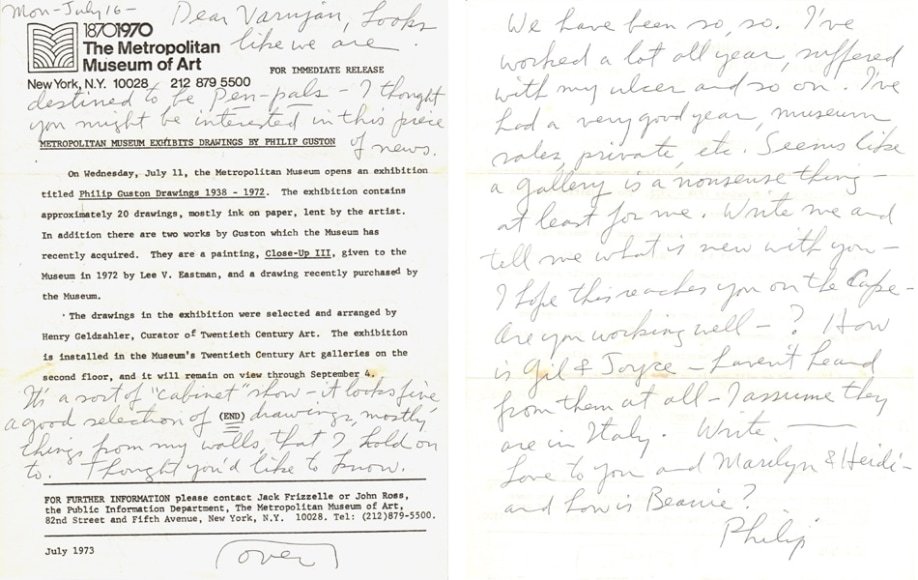 Mon-July 16-
Dear Varujan, Looks
like we are
18701970
The Metropolitan
Museum of Art
FOR IMMEDIATE RELEASE
New York, N.Y. 10028 212 879 5500
destined to be Pen-pals - I thought
you might be interested in this piece
of news.
METROPOLITAN MUSEUM EXHIBITS DRAWINGS BY PHILIP GUSTON
On Wednesday, July 11, the Metropolitan Museum opens an exhibition
titled Philip Guston Drawings 1938 - 1972. The exhibition contains
approximately 20 drawings, mostly ink on paper, lent by the artist.
In addition there are two works by Guston which the Museum has
recently acquired. They are a painting, Close-Up III, given to the
Museum in 1972 by Lee V. Eastman, and a drawing recently purchased by
the Museum.
The drawings in the exhibition were selected and arranged by
Henry Geldzahler, Curator of Twentieth Century Art. The exhibition
is installed in the Museum's Twentieth Century Art galleries on the
second floor, and it will remain on view through September 4.
It's a sort of "cabinet" show - it looks fine
a good selection of (END) drawings, mostly
things from my walls, that I hold on
to. Thought you'd like to know.
FOR FURTHER INFORMATION please contact Jack Frizzelle or John Ross,
the Public Information Department, The Metropolitan Museum of Art,
82nd Street and Fifth Avenue, New York, N.Y. 10028. Tel: (212)879-5500.
July 1973
(over)
We have been so, so. I've
worked a lot all year, suffered
with my ulcer and so on. I've
had a very good year, museum
sales, private, etc. Seems like
a gallery is a nonsense thing -
at least for me. Write me and
tell me what is new with you -
I hope this reaches you on the Cape -
Are you working well - ? How
is Gil & Joyce - haven't heard
from them at all - I assume they
are in Italy. Write.
Love to you and Marilyn & Heidi -
and how is Beanie?
Philip